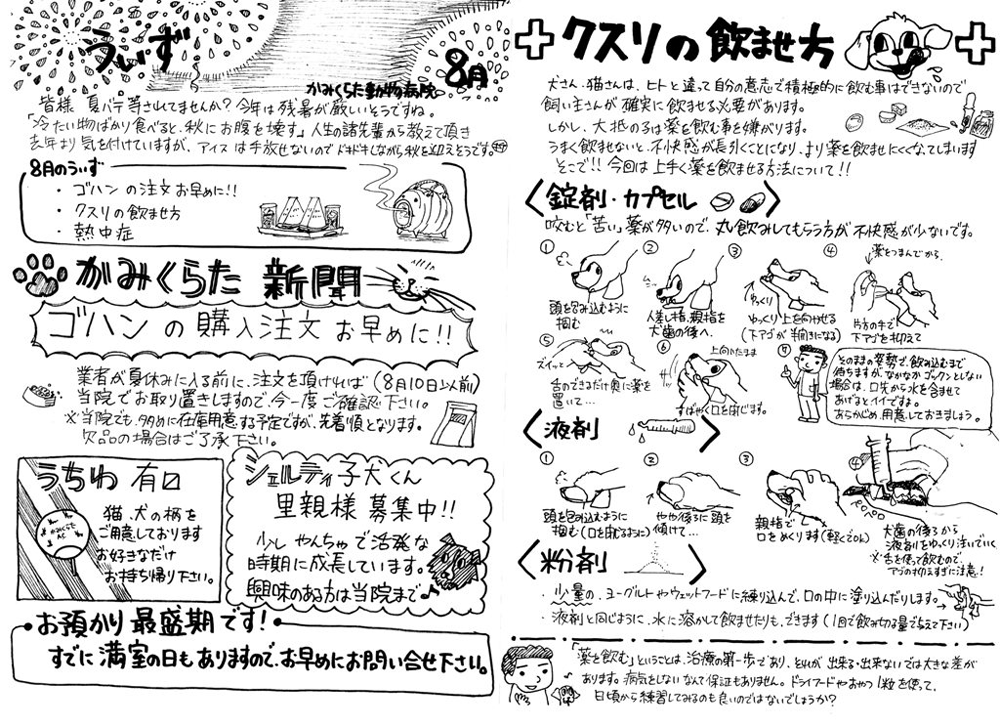 うぃず
8月
かみくらた動物病院
皆様 夏バテ等されてませんか？今年は残暑が厳しいそうですね。
「冷たい物ばかり食べると、秋にお腹を壊す」人生の諸先輩から教えて頂き
去年より気を付けていますが、アイスは手放せないのでドキドキしながら秋を迎えそうです。
8月のうぃず
・ゴハンの注文お早めに!!
・クスリの飲ませ方
・熱中症
かみくらた 新聞
ゴハンの購入注文お早めに!!
業者が夏休みに入る前に、注文を頂ければ(8月10日以前)
当院でお取り置きしますので、今一度ご確認下さい。
※当院でも、多めに在庫用意する予定ですが、先着順となります。
欠品の場合はご了承下さい。
うちわ 有ロ
かみくらた
AC
猫、犬の柄を
ご用意しております
お好きなだけ
お持ち帰り下さい。
シェルティ子犬くん
里親様 募集中!!
少し やんちゃで活発な
時期に成長しています。
興味のある方は当院まで♪
・お預かり最盛期です!・
すでに満室の日もありますので、お早めにお問い合せ下さい。
クスリの飲ませ方
犬さん、猫さんは、ヒトと違って自分の意志で積極的に飲む事はできないので
飼い主さんが確実に飲ませる必要があります。
しかし、大抵の子は薬を飲む事を嫌がります。
うまく飲ませないと、不快感が長引くことになり、より薬を飲ませにくくなってしまいます
そこで!!今回は上手く薬を飲ませる方法について!!
〈錠剤・カプセル 〉
咬むと「苦い」薬が多いので、丸飲みしてもらう方が不快感が少ないです。
①
頭を包み込むように
掴む
②
人差し指、親指を
犬歯の後へ。
③
ゆっくり
ゆっくり上を向かせる
(下アゴが半開きになる)
④
薬をつまんでから、
片方の手で
下アゴを抑えて
⑤
ズイッと
舌のできるだけ奥に薬を
置いて…
⑥
上向いたまま
すばやく口を閉じます。
⑦
そのままの姿勢で、飲み込むまで
待ちますが、なかなかゴックンとしない
場合は、口先から水を含ませて
あげるとイイですよ。
あらかじめ、用意しておきましょう。
〈液剤 〉
①
頭を包み込むように
掴む(口を閉じるように)
②
やや後ろに頭を
傾けて…
③
親指で
口をめくります(軽くでok)
④
ペロペロ
犬歯の後ろから、
液剤をゆっくり注いでいく
※舌を使って飲むので、
アゴの抑えすぎに注意！
〈粉剤 〉
・少量の、ヨーグルトやウェットフードに練り込んで、口の中に塗り込んだりします。
・液剤と同じように、水に溶かして飲ませたりも、できます(1回で飲み切る量で与えて下さい)
「薬を飲む」ということは、治療の第一歩であり、それが出来る・出来ないでは大きな差が
あります。病気をしないなんて保証もありません。ドライフードやおやつ1粒を使って、
日頃から練習してみるのも良いのではないでしょうか？